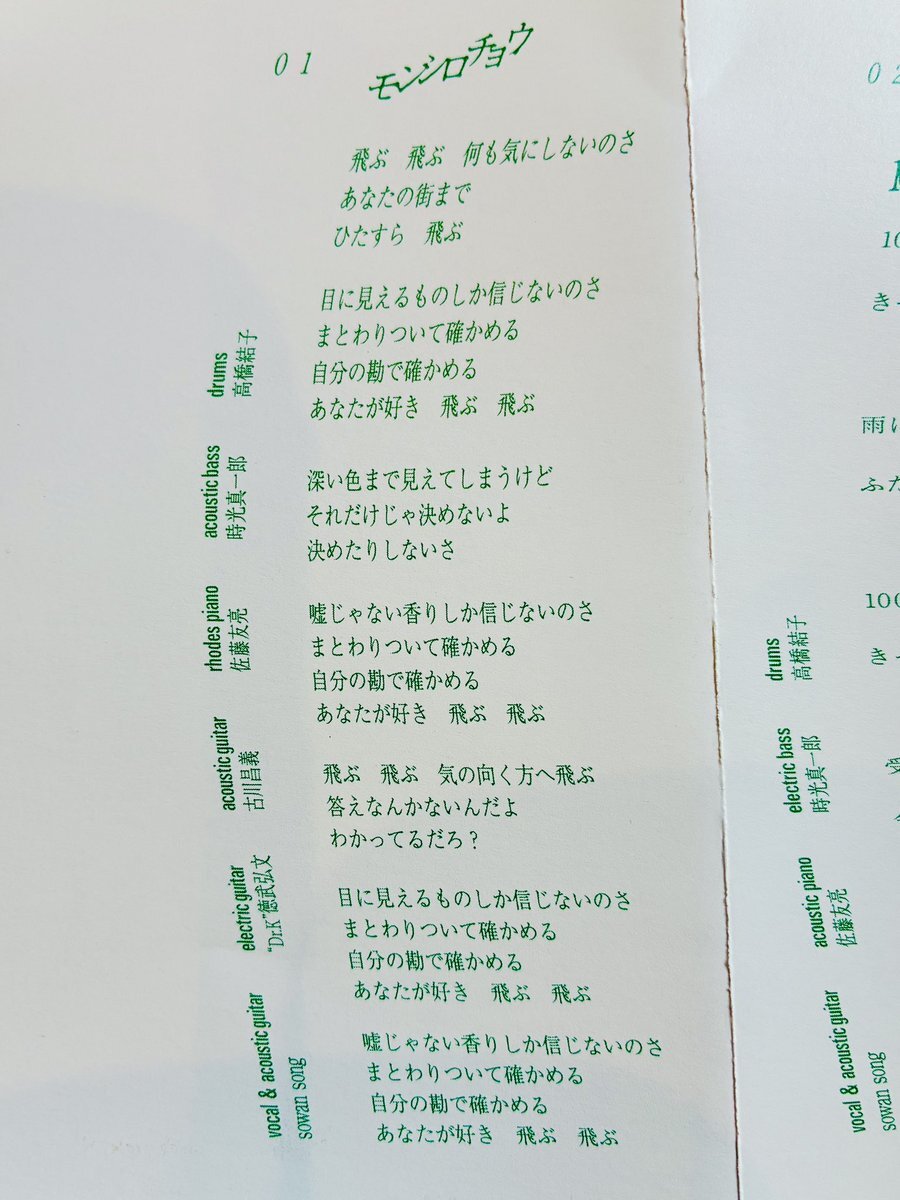 01
モンシロチョウ
飛ぶ　飛ぶ　何も気にしないのさ
あなたの街まで
ひたすら　飛ぶ
目に見えるものしか信じないのさ
まとわりついて確かめる
自分の勘で確かめる
あなたが好き　飛ぶ　飛ぶ
深い色まで見えてしまうけど
それだけじゃ決めないよ
決めたりしないさ
嘘じゃない香りしか信じないのさ
まとわりついて確かめる
自分の勘で確かめる
あなたが好き　飛ぶ　飛ぶ
飛ぶ　飛ぶ　気の向く方へ飛ぶ
答えなんかないんだよ
わかってるだろ？
目に見えるものしか信じないのさ
まとわりついて確かめる
自分の勘で確かめる
あなたが好き　飛ぶ　飛ぶ
嘘じゃない香りしか信じないのさ
まとわりついて確かめる
自分の勘で確かめる
あなたが好き　飛ぶ　飛ぶ
drums
高橋結子
acoustic bass
時光真一郎
rhodes piano
佐藤友亮
acoustic guitar
古川昌義
electric guitar
"Dr.K"徳武弘文
vocal & acoustic guitar
sowan song
02
雨に
ふた
100
drums
高橋結子
electric bass
時光真一郎
acoustic piano
佐藤友亮
vocal & acoustic guitar
sowan song